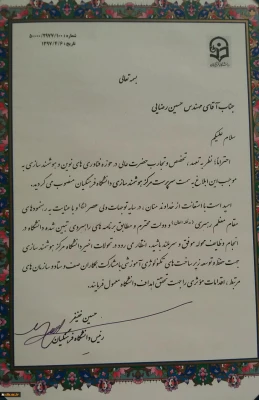 شماره: ۵۰۰۰۰/۳۹۷۲/۱۰۰
تاریخ: ۱۳۹۷/۴/۲۰
بسمه تعالی
جناب آقای مهندس حسین رضایی
سلام علیکم
احتراماً، نظر به تعهد، تخصص و تجارب حضرت‌عالی در حوزه فناوری های نوین و هوشمند سازی به
موجب این ابلاغ به سمت سرپرست مرکز هوشمند سازی دانشگاه فرهنگیان منصوب می گردید.
امید است با استعانت از خداوند منان، در سایه توجهات ولی عصر (عج) و با عنایت به رهنمودهای
مقام معظم رهبری و دولت محترم و مطابق برنامه های راهبردی تبیین شده دانشگاه در
انجام وظایف محوله موفق و سربلند باشید. انتظار می رود در تحولات اخیر دانشگاه مرکز هوشمند سازی
جهت حفظ و توسعه زیرساخت های تکنولوژی آموزشی با مشارکت همکاران صف و ستاد و سازمان های
مرتبط، اقدامات مؤثری را جهت تحقق اهداف دانشگاه معمول فرمایند.
حسین خنیفر
رئیس دانشگاه فرهنگیان